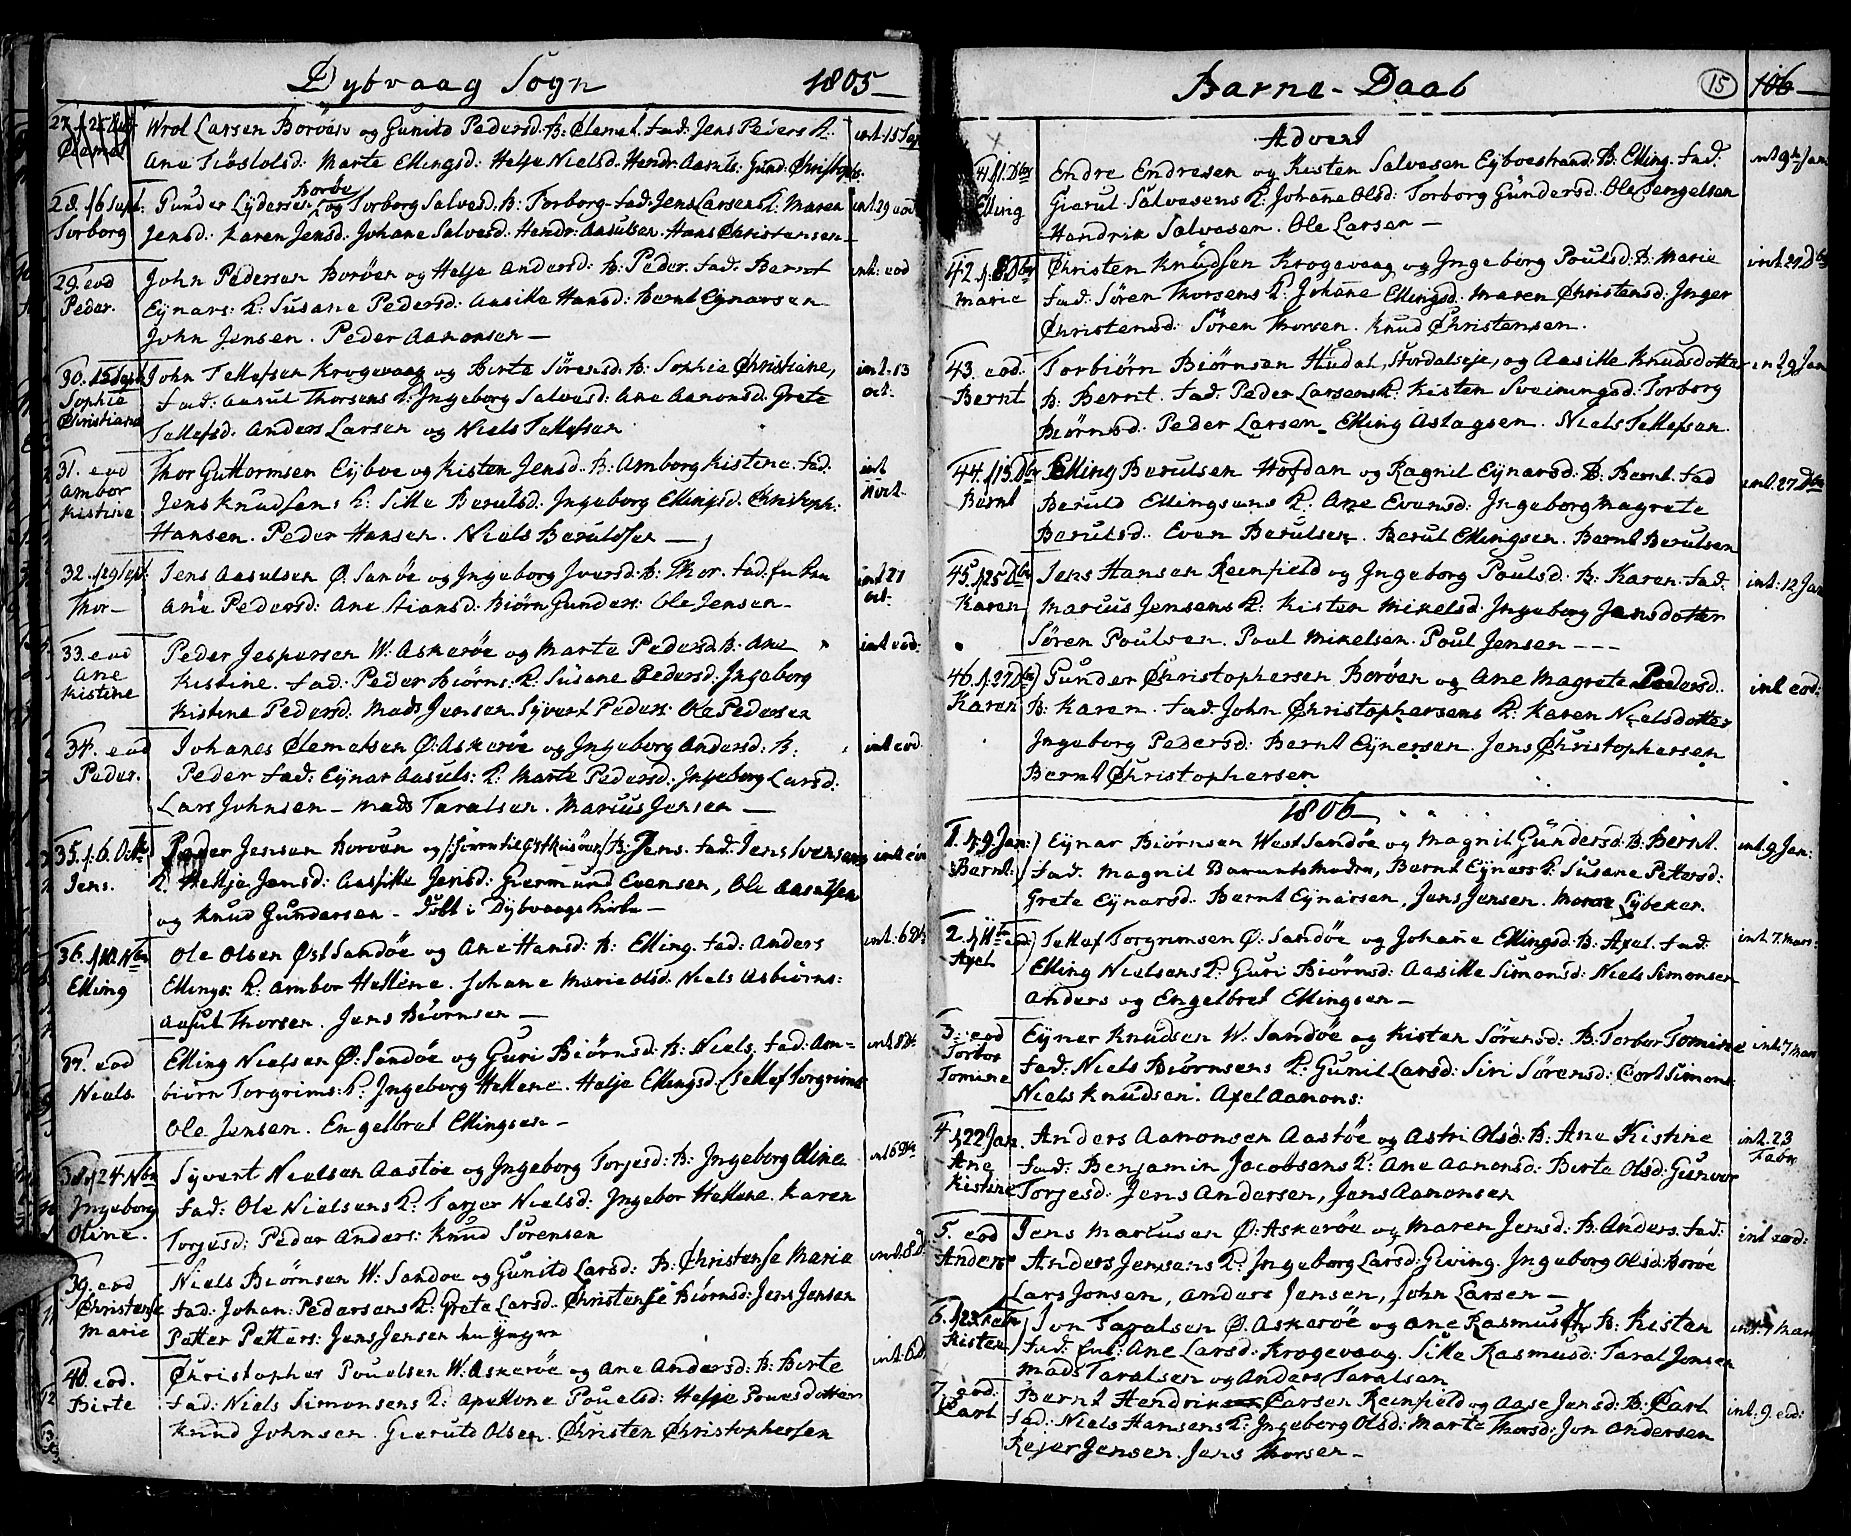 Dybvaag Sogn 1805
27. 25 Aug: Wrol Larsen Borøen og Gunild Pedersd. B: Clemet. fad: Jens Peders K: int 15 Sept
Clemet Ane Tiøstolsd: Marte Ellingsd: Helje Nielsd. Hendr: Aasuls: Gund: Christophs:
28. 16 Sept: Gunder Lydersen Borøe og Torborg Salvesd. B: Torborg. fad: Jens Larsens K: Maren int 29 eod
Torborg Jensd: Karen Jensd: Johane Salvesd: Hendr: Aasulsen. Hans Christensen
29. eod John Pedersen Borøen og Helje Andersd: B: Peder. fad: Bernt int: eod
Peder. Eynars: K: Susane Pedersd: Aasille Hansd: Bernt Eynarsen
John Jensen. Peder Aanonsen
30. 15 Sept John Tellefsen Krogevaag og Birte Sørensd. B: Sophie Christiane, int. 13
Sophie fad: Aasul Thorsens K: Ingeborg Salvesd: Ane Aanonsd. Grete oct.
Christiane Tellefsd. Anders Larsen og Niels Tellefsen
31. eod Thor Guttormsen Eyboe og Kisten Jensd. B: Amborg Kistine. fad. int
Ambor Jens Knudsens K: Sille Berulsd: Ingeborg Ellingsd. Christoph:
Kistine Hansen. Peder Hansen. Niels Berulsen
32. 29 Sept: Jens Aasulsen Ø. Sanøe og Ingeborg Iversd: B: Thor. fad: int 27
Thor Ane Pedersd: Ane Stiansd: Biørn Gunders: Ole Jensen oct.
33. eod Peder Jespersen W: Askerøe og Marte Pedersd. B: Ane int eod:
Ane Kistine. fad: Peder Biørns: K: Susane Pedersd: Ingeborg
Kistine Kistine Pedersd. Mads Jensen Syvert Peders: Ole Pedersen
34. eod Johanes Clemetsen Ø: Askerøe og Ingeborg Andersd: B: int eod.
Peder. Peder fad: Eynar Aasuls: K: Marte Pedersd: Ingeborg Larsd:
Lars Johnsen – Mads Taralsen. Marius Jensen
35. 6. Octb Peder Jensen Korvan og B: Jens. fad: Jens Svensens int eod
Jens. K: Hellje Jensd: Aasille Jensd: Giermund Evensen, Ole Aasulsen
og Knud Gundersen – døbt i Dybvaags Kirke –
36. 10. Nbr Ole Olsen Øst Sandøe og Ane Hansd: B: Elling. fad: Anders int: 6
Elling Ellings: K: Ambor Hellene. Johane Marie Olsd: Niels Asbiørns:
Aasul Thorsen. Jens Biørnsen
37. eod Elling Nielsen Ø: Sandøe og Guri Biørnsd: B: Niels. fad: Am- int 8
Niels. biørn Torgrims: K: Ingeborg Hellene. Helje Ellingsd. Tellef Torgrims:
Ole Jensen. Engelbret Ellingsen
38. 24 Nbr Syvert Nielsen Aastøe og Ingeborg Torjesd: B: Ingeborg Oline int 6
Ingeborg fad: Ole Nielsens K: Torjer Nielsd: Ingebor Hellene. Karen
Oline. Torjesd: Peder Anders: Knud Sørensen
39. eod Niels Biørnsen W: Sandøe og Gunild Larsd: B: Christense Maria int. 8
Christense fad: Johan: Pedersens K: Grete Larsd. Christense Biørnsd: Jens Jensen
Marie Petter Petters: Jens Jensen hu Yngre
40. eod. Christopher Pouelsen W. Askerøe og Ane Andersd: B: Birte int. 6
Birte fad: Niels Simonsens K: Apellone Pouelsd: Helje Pouelsdotter
Knud Johnsen. Gieruld Olsen. Christen Christophersen
Barne-Daab 15 106
Advent
41. 1. Dbr Endre Endresen og Kisten Salvesen Eyboestrand: B: Elling. fad: int 9 Jan
Elling Gierul Salvesens K: Johane Olsd: Torborg Gundersd: Ole Jengelsen
Hendrik Salvesen. Ole Larsen –
42. 8 Dbr Christen Knudsen Krogevaag og Ingeborg Poulsd: B: Marie int 27 Dbr
Marie fad: Søren Thorsens K: Johane Ellingsd. Maren Christensd: Inger
Christensd: Søren Thorsen. Knud Christensen.
43. eod. Torbiørn Biørnsen Hudal, Stordalseje, og Aasille Knudsdotter int 9 Jan
Bernt B: Bernt. fad: Peder Larsens K: Kisten Sveinungsd: Torborg
Biørnsd: Peder Larsen. Elling Aslagsen. Niels Tellefsen
44. 15 Dbr Elling Berulsen Hofdan og Ragnil Eynarsd: B: Bernt. fad int. 27 Dbr
Bernt Beruld Ellingsens K: Ane Evensd: Ingeborg Magrete
Berulsd: Even Berulsen. Berul Ellingsen. Bernt Berulsen
45. 25 Dbr Jens Hansen Reinfield og Ingeborg Poulsd: B: Karen. fad. int: 12 Jan
Karen Marcus Jensens K: Kisten Mikelsd: Ingeborg Jensdotter
Søren Poulsen. Poul Mikelsen. Poul Jensen – – –
46. 27 Dbr Gunder Christophersen Borøen og Ane Magrete Pedersd. int eod:
Karen B: Karen. fad: John Christophersens K: Karen Nielsdotter
Ingeborg Pedersd: Bernt Eynersen. Jens Christophersen
Bernt Christophersen
1806
1. 9 Jan: Eynar Biørnsen West Sandøe og Magnil Gundersd: B: Bernt. int. 9 Jan:
Bernt fad: Magnil Bernt Eyners K: Susane Pettersd:
Grete Eynarsd. Bernt Eynarsen, Jens Jensen. Lybeker.
2. eod Tellef Torgrimsen Ø. Sandøe og Johane Ellingsd: B: Axel. fad: int 7. Mars:
Axel Elling Nielsens K: Guri Biørnsd: Aasille Simonsd: Niels Simonsen
Anders og Engelbret Ellingsen –
3. eod Eyner Knudsen W. Sandøe og Kisten Sørensd: B: Torbor Tomine int 7 Mar
Torbor fad: Niels Biørnsens K: Gunil Larsd: Siri Sørensd: Cort Simons
Tomine Niels Knudsen. Axel Aanons:
4. 22 Jan Anders Aanonsen Aastøe og Astri Olsd: B: Ane Kistine int. 23
Ane fad: Benjamin Jacobsens K: Ane Aanonsd: Birte Olsd: Gunvor Febr
Kistine Torjesd: Jens Andersen, Jens Aanonsen
5. eod Jens Markusen Ø: Askerøe og Maren Jensd: B: Anders. fad: int eod:
Anders Anders Jensens K: Ingeborg Larsd: Giving. Ingeborg Olsd: Borøe
Lars Jonsen, Anders Jensen, John Larsen –
6. 23 Febr Jon Taralsen Ø. Askerøe og Ane Rasmusd. B: Kisten int. 7 Mar
Kisten fad: Ane Larsd: Krogevaag. Sille Rasmusd: Taral Jonsen
Mads Taralsen og Anders Taralsen
7. eod. Bernt Hendrik Carsen Reinfield og Aase Jensd: B: Carl int: 9. eod:
Carl fad: Niels Hansens K: Ingeborg Olsd: Marte Thorsd: Jon Andersen
Rejer Jensen. Jens Thorsen –